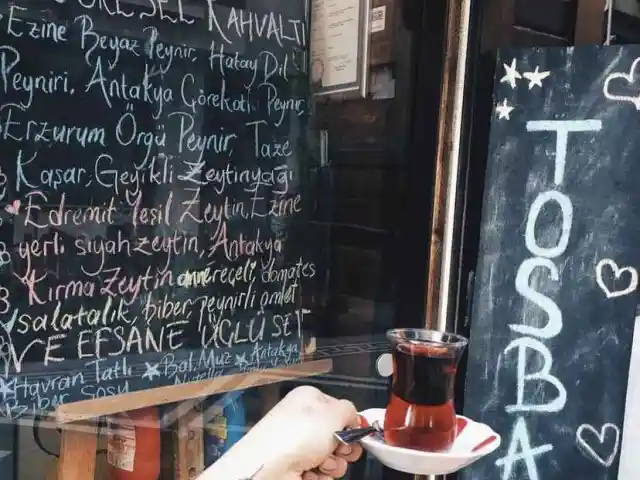 YÖRESEL KAHVALTI
Ezine Beyaz Peynir, Hatay Dil
Peyniri, Antakya Çörekotlu Peynir,
Erzurum Örgü Peynir, Taze
Kaşar, Geyikli Zeytinyağı
Edremit Yeşil Zeytin, Ezine
yerli siyah zeytin, Antakya
Kırma Zeytin anne reçeli, domates
salatalık, biber, peynirli omlet
VE EFSANE ÜÇLÜ SET
Havran Tatlı Biber Sosu
Bal, Muz
Antakya
TOSBA